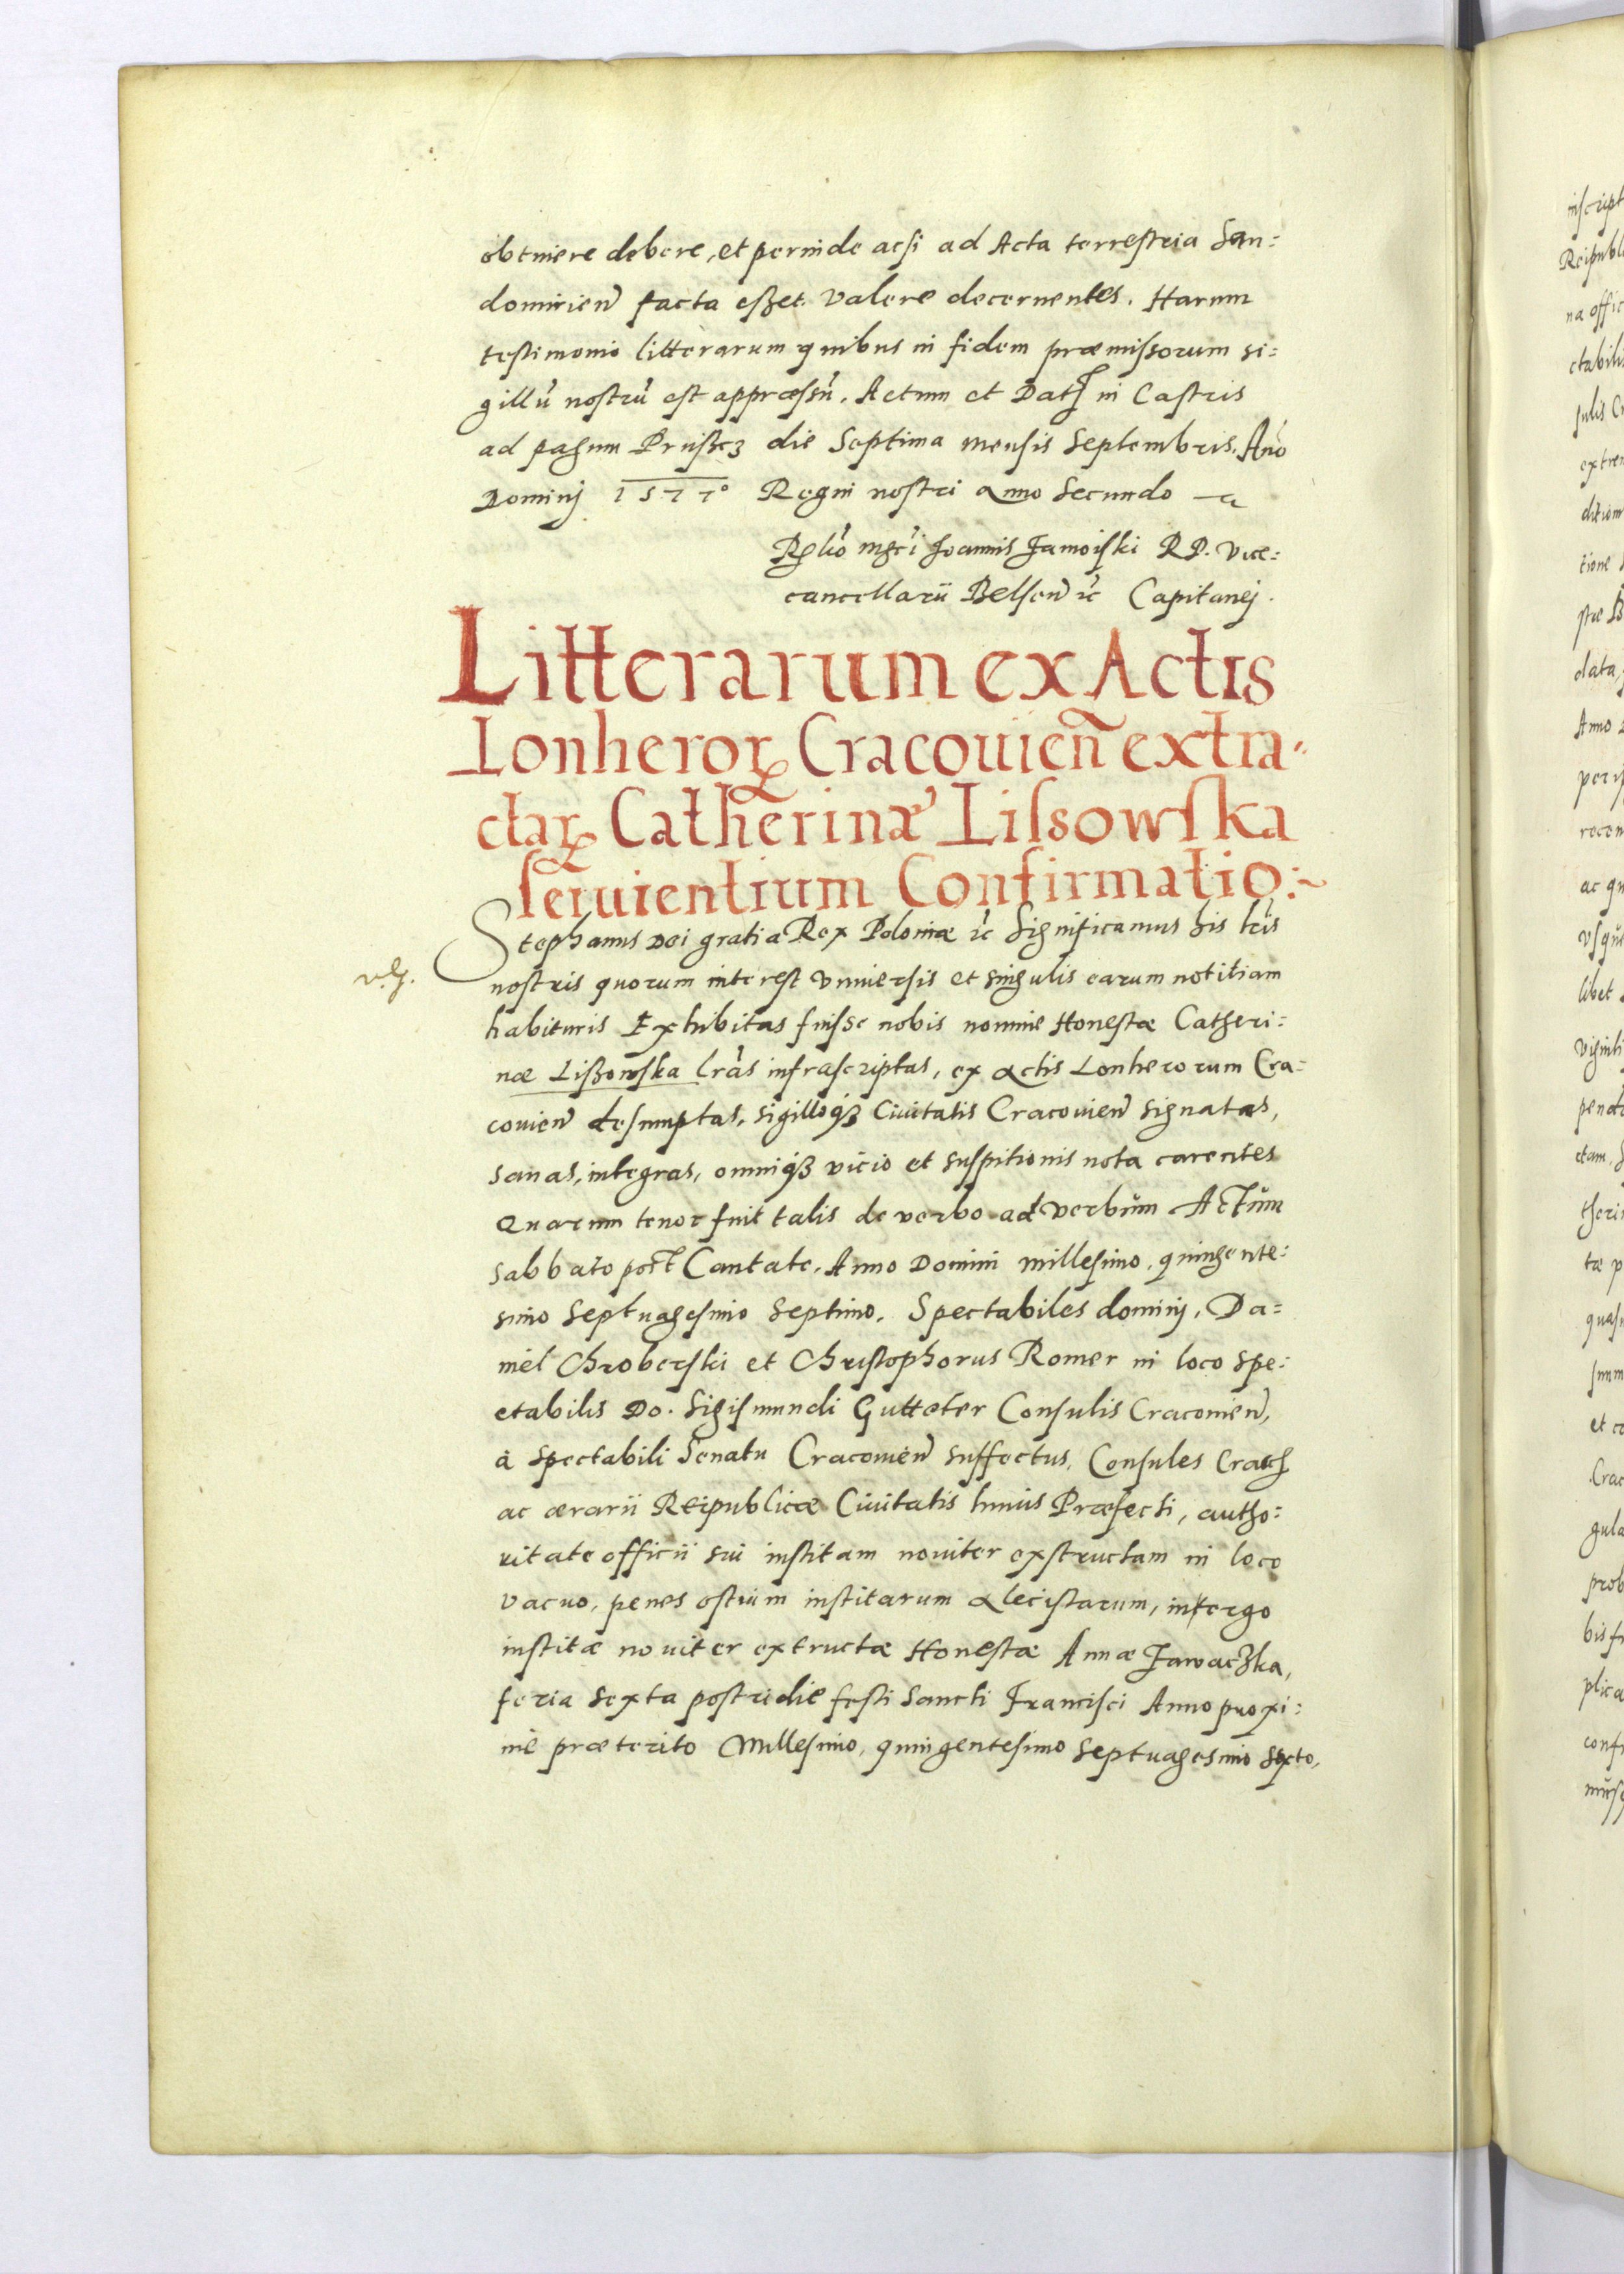 obtinere debere, et perinde acsi ad Acta terrestria San:
domirien̄ facta eßet valere decernentes. Harum
testimonio litterarum quibus in fidem præmissorum si:
gillū nostrū est appræssū. Actum et Dat in Castris
ad pagum Prussez die Septima mensis Septembris. Año
Dominj 1577° Regni nostri anno Secundo
Rlō mgci Joannis Zamoiski R P. Vice:
cancellarii Belsen̄ ꝛc Capitanej.
Litterarum ex Actis
Lonheroꝝ Cracouien̄ extra-
ctaꝝ Catherinæ Lissowska
seruientium Confirmatio:~
Stephanus Dei gratia Rex Poloniæ ꝛc Significamus his lr̄is
nostris quorum interest vniuersis et singulis earum notitiam
habituris Exhibitas fuisse nobis nomine Honestæ Catheri:
næ Lißowska lr̄as infrascriptas, ex actis Lonherorum Cra:
couien̄ desumptas, sigilloqꝫ Ciuitatis Cracouien̄ signatas,
sanas, integras, omniqꝫ vicio et suspitionis nota carentes
Quarum tenor fuit talis de verbo ad verbūm Actūm
sabbato post Cantate, Anno Domini millesimo, quingente:
simo Septuagesimo Septimo. Spectabiles dominj, Da=
niel Chroberski et Christophorus Romer in loco spe:
ctabilis Do. Sigismundi Gutteter Consulis Cracouien̄,
à Spectabili Senatu Cracouien̄ suffectus, Consules Crac
ac ærarii Reipublicæ Ciuitatis huius Præfecti, autho:
ritate officii sui institam nouiter exstructam in loco
vacuo, penes ostium institarum alecistarum, intergo
institæ nouiter extructæ Honestæ Annæ Jawaczka,
feria sexta postridie festi Sancti Francisci Anno proxi:
mè præterito Millesimo, quingentesimo septuagesimo sexto,